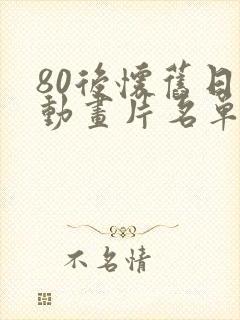 80後懷舊日
動畫片名單
不名情